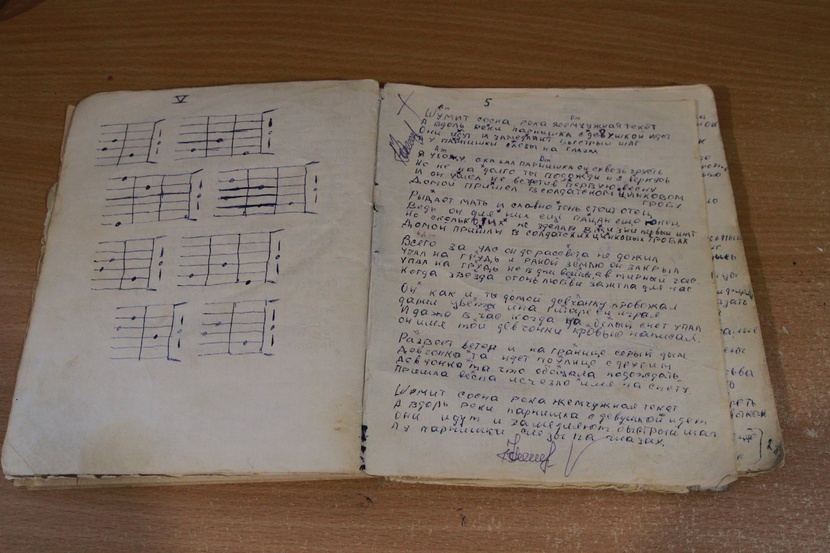 V
5
Am Dm
Шумит сосна река жемчужная течёт
А вдоль реки парнишка с девушкой идет
Они идут и замедляют быстрый шаг
А у парнишки слезы на глазах
Am Dm
Я ухожу сказал парнишка ей сквозь грусть
Но не на долго ты подожди и я вернусь
И он ушел не встретив первую весну
Домой пришел в солдатском цинковом
гробу
Рыдает мать и словно тень стоит отец
Ведь он для них еще пацан еще юнец
Но сколько их не сделав в жизни первый шаг
Домой пришли в солдатских цинковых гробах
Всего за час он до рассвета не дожил
Упал на грудь и раной землю он закрыл
Упал на грудь не в дни войны, а в мирный час
Когда звезда огонь любви зажгла для нас
Он как и ты домой девчонку провожал
дарил цветы и на гитаре ей играл
И даже в час когда на белый снег упал
он имя той девчонки кровью написал.
Развеет ветер и на границе серый дым
Девчонка та идет по улице с другим
девчонка та что обещала подождать
Пришла весна исчезло имя на снегу
Шумит сосна река жемчужная течет
А вдоль реки парнишка с девушкой идет
Они идут и замедляют быстрый шаг
А у парнишки слезы на глазах.